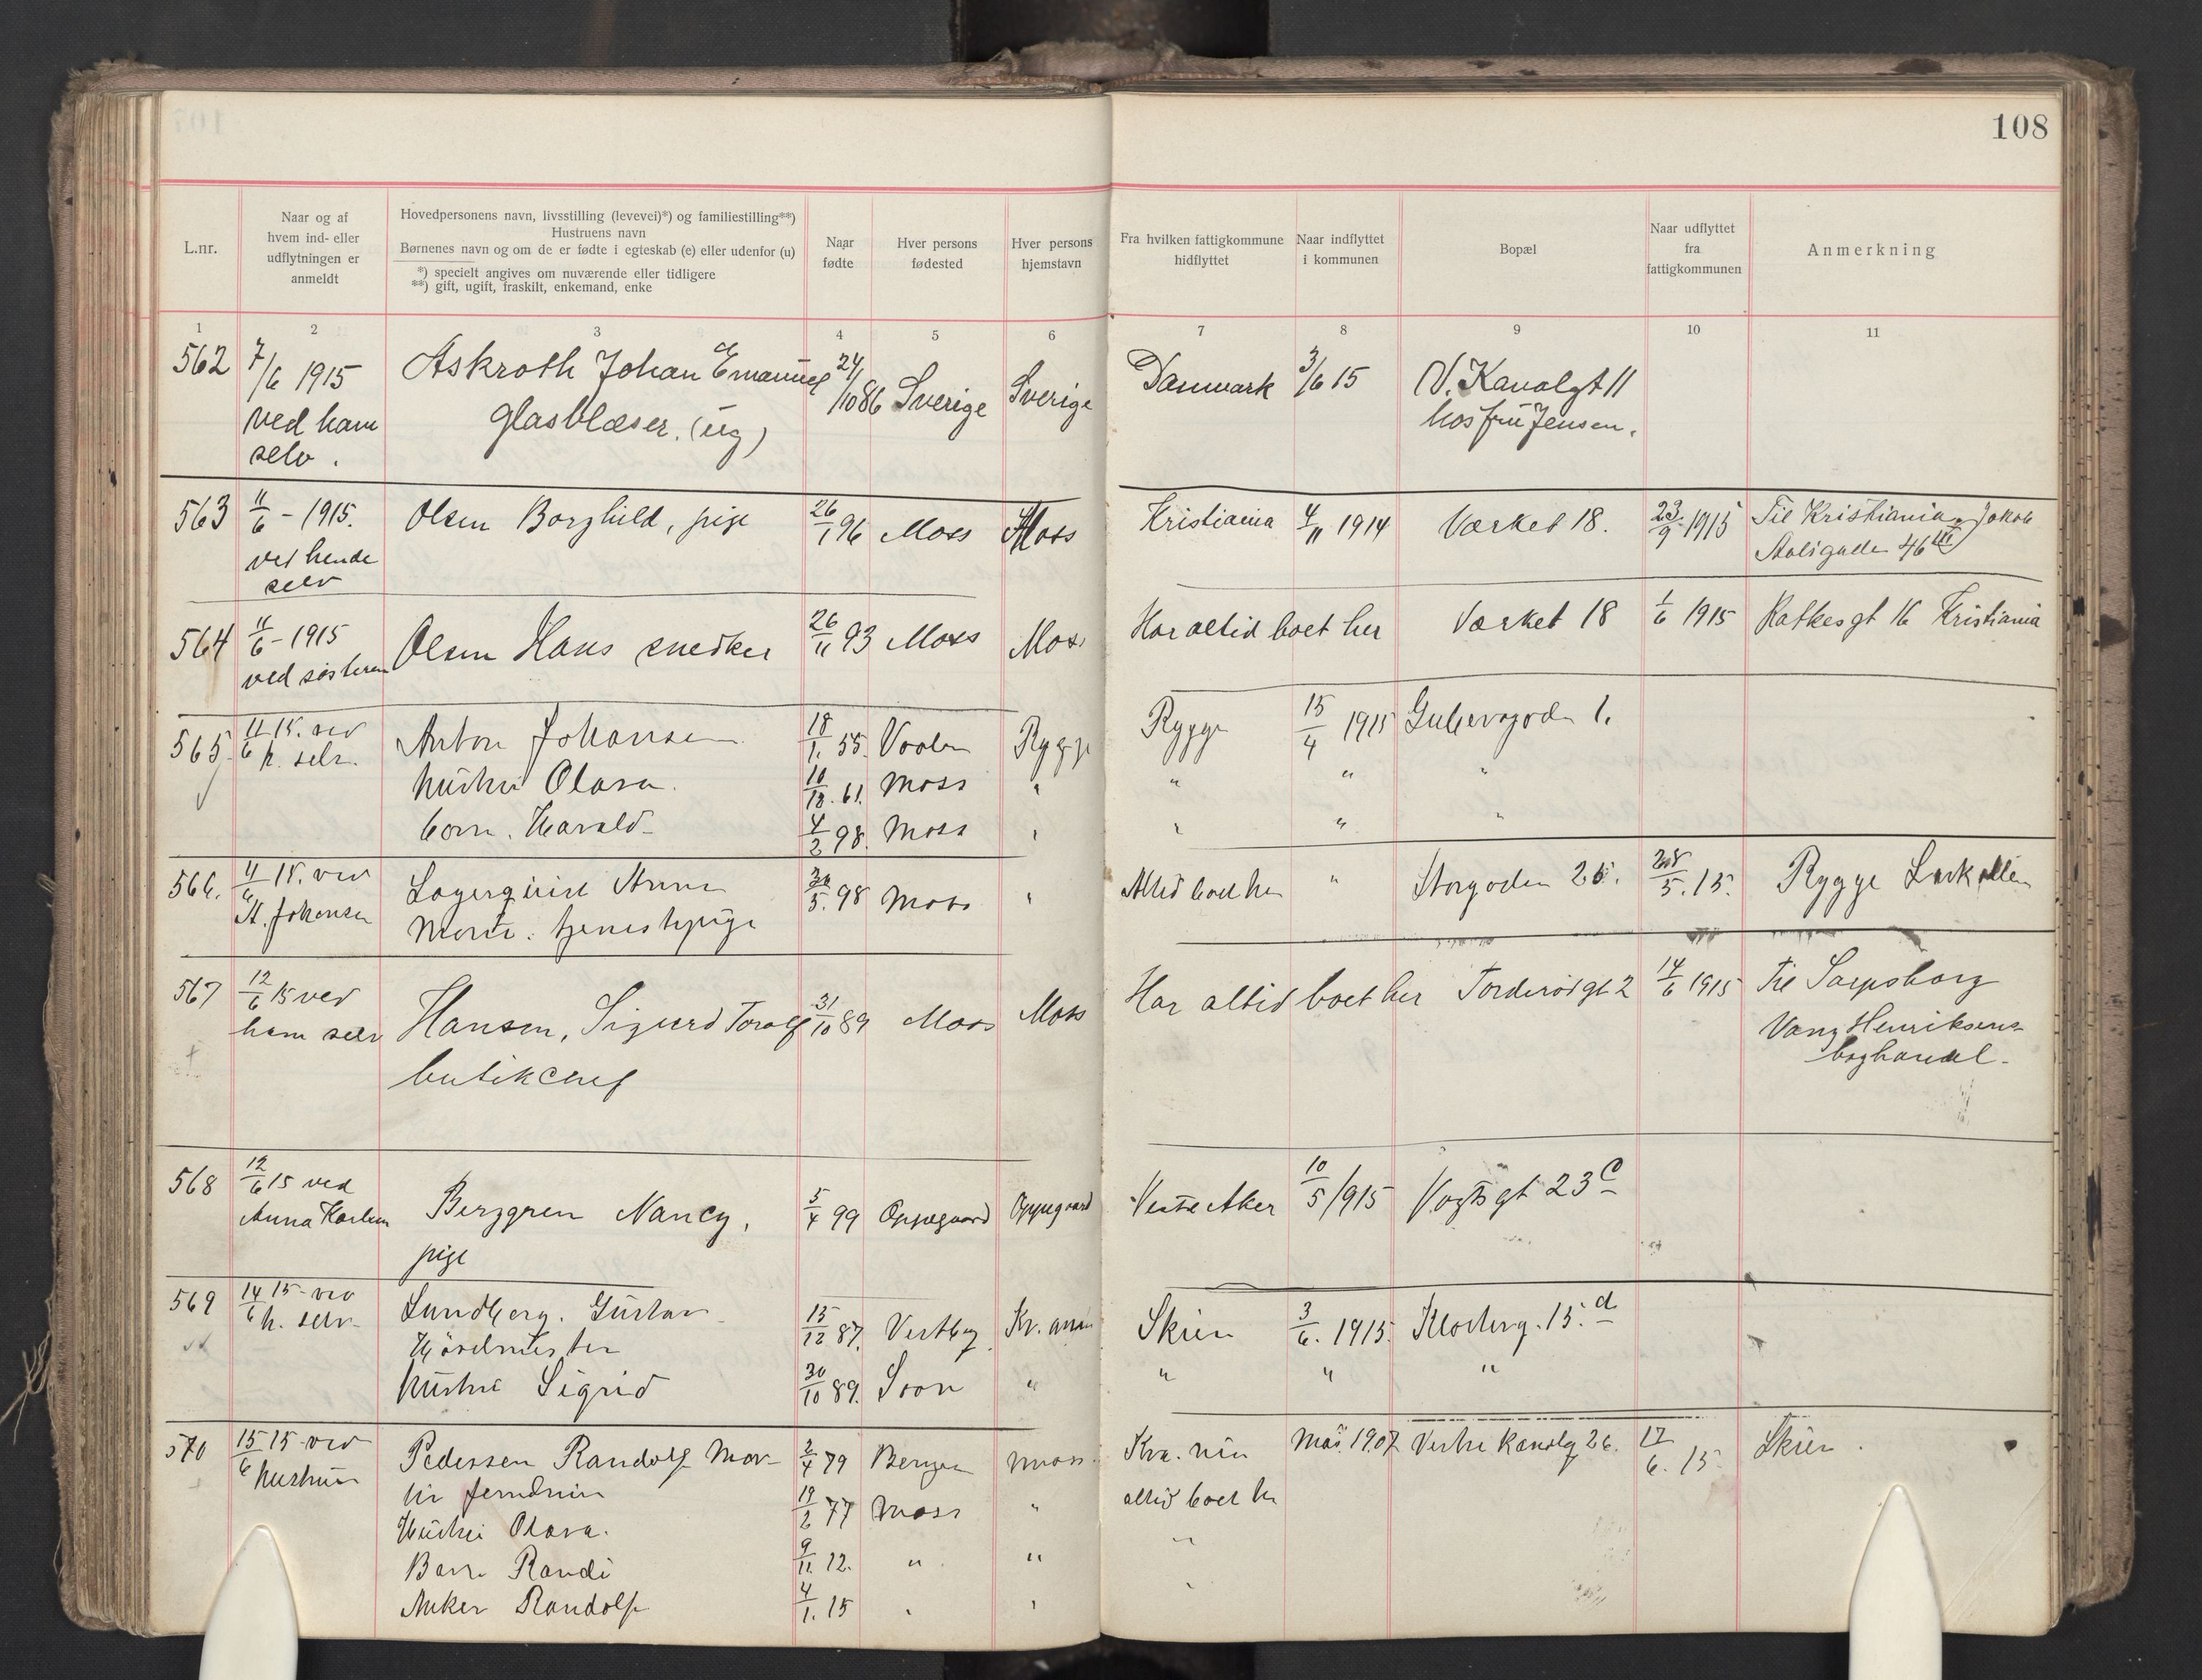 108
L.nr.
Naar og af
hvem ind- eller
udflytningen er
anmeldt
Hovedpersonens navn, livsstilling (levevei)*) og familiestilling**)
Hustruens navn
Børnenes navn og om de er fødte i egteskab (e) eller udenfor (u)
*) specielt angives om nuværende eller tidligere
**) gift, ugift, fraskilt, enkemand, enke
Naar
fødte
Hver persons
fødested
Hver persons
hjemstavn
Fra hvilken fattigkommune
hidflyttet
Naar indflyttet
i kommunen
Bopæl
Naar udflyttet
fra
fattigkommunen
Anmerkning
1 2 3 4 5 6 7 8 9 10 11
562 7/6 1915 Askroth Johan Emanuel 24/10 86 Sverige Sverige Danmark 3/6 15 V. Kanalgt 11
ved ham glasblæser. (ug) hos fru Jensen.
selv.
563 11/6 - 1915. Olsen Borghild, pige 26/1 96 Moss Moss Kristiania 4/11 1914 Værket 18. 23/9 1915 Til Kristiania Jakob
ved hende Aalsgaden 46 III
selv
564 11/6 - 1915 Olsen Hans snedker 26/11 93 Moss Moss Har altid boet her Værket 18 1/6 1915 Ratkesgt 16 Kristiania
ved søsteren
565 11/6 15. ved Anton Johansen 18/1. 55 Vaaler Rygge Rygge 15/4 1915 1.
h. selv. hustru Olava. 10/12. 61. Moss " " " "
barn. Harald 4/2 98. Moss " " " "
566. 11/6 15. ved Lagerquist Anna 30/5. 98 Moss " Altid boet her " Storgaden 25. 28/5. 15. Rygge Larkollen
A. Johansen tjenestepige
567 12/6 15 ved Hansen, Sigurd Toralf 31/10 89 Moss Moss Har altid boet her Torderødgt 2 14/6 1915 Til Sarpsborg
ham selv butikchef Vang Henriksens
boghandel.
568 12/6 15 ved Berggren Nancy, 5/4 99 Oppegaard Oppegaard Vestre Aker 10/5 1915 Vogtsgt 23 C
Anna Karlsen pige
569 14/6 15 ved Lundberg. Gustav 15/12 87. Vestby Skien 3/6. 1915. Klosterg. 15. d
h. selv
hustru Sigrid 30/10 89. Soon " " " "
570 15/6 15 ved Pedersen Randolf Mar- 2/4 79 Bergen Moss. 1907 Vestre Kanalg 26. 17/6. 15. Skien.
hustruen 19/2 77 Moss " altid boet her
Hustru Olava.
Barn Randi 9/11. 12. " " "
Anker Randolf 4/1. 15 " " "